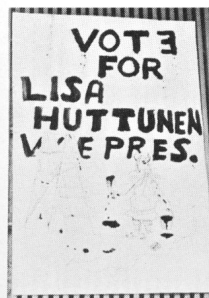 VOTE
FOR
LISA
HUTTUNEN
VICE PRES.